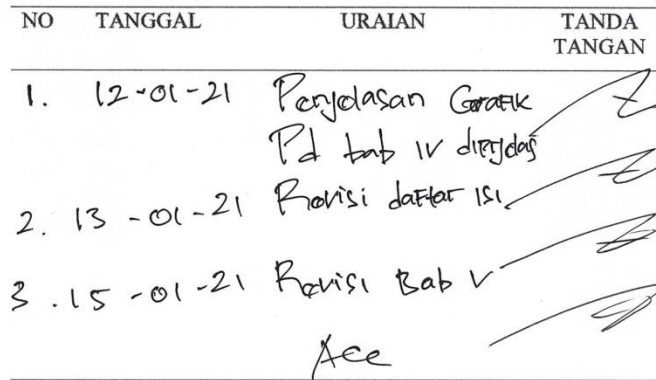 NO TANGGAL URAIAN TANDA TANGAN
1. 12-01-21 Penjelasan Grafik
Pd bab IV diperjelas
2. 13-01-21 Revisi daftar isi
3. 15-01-21 Revisi Bab V
Acc